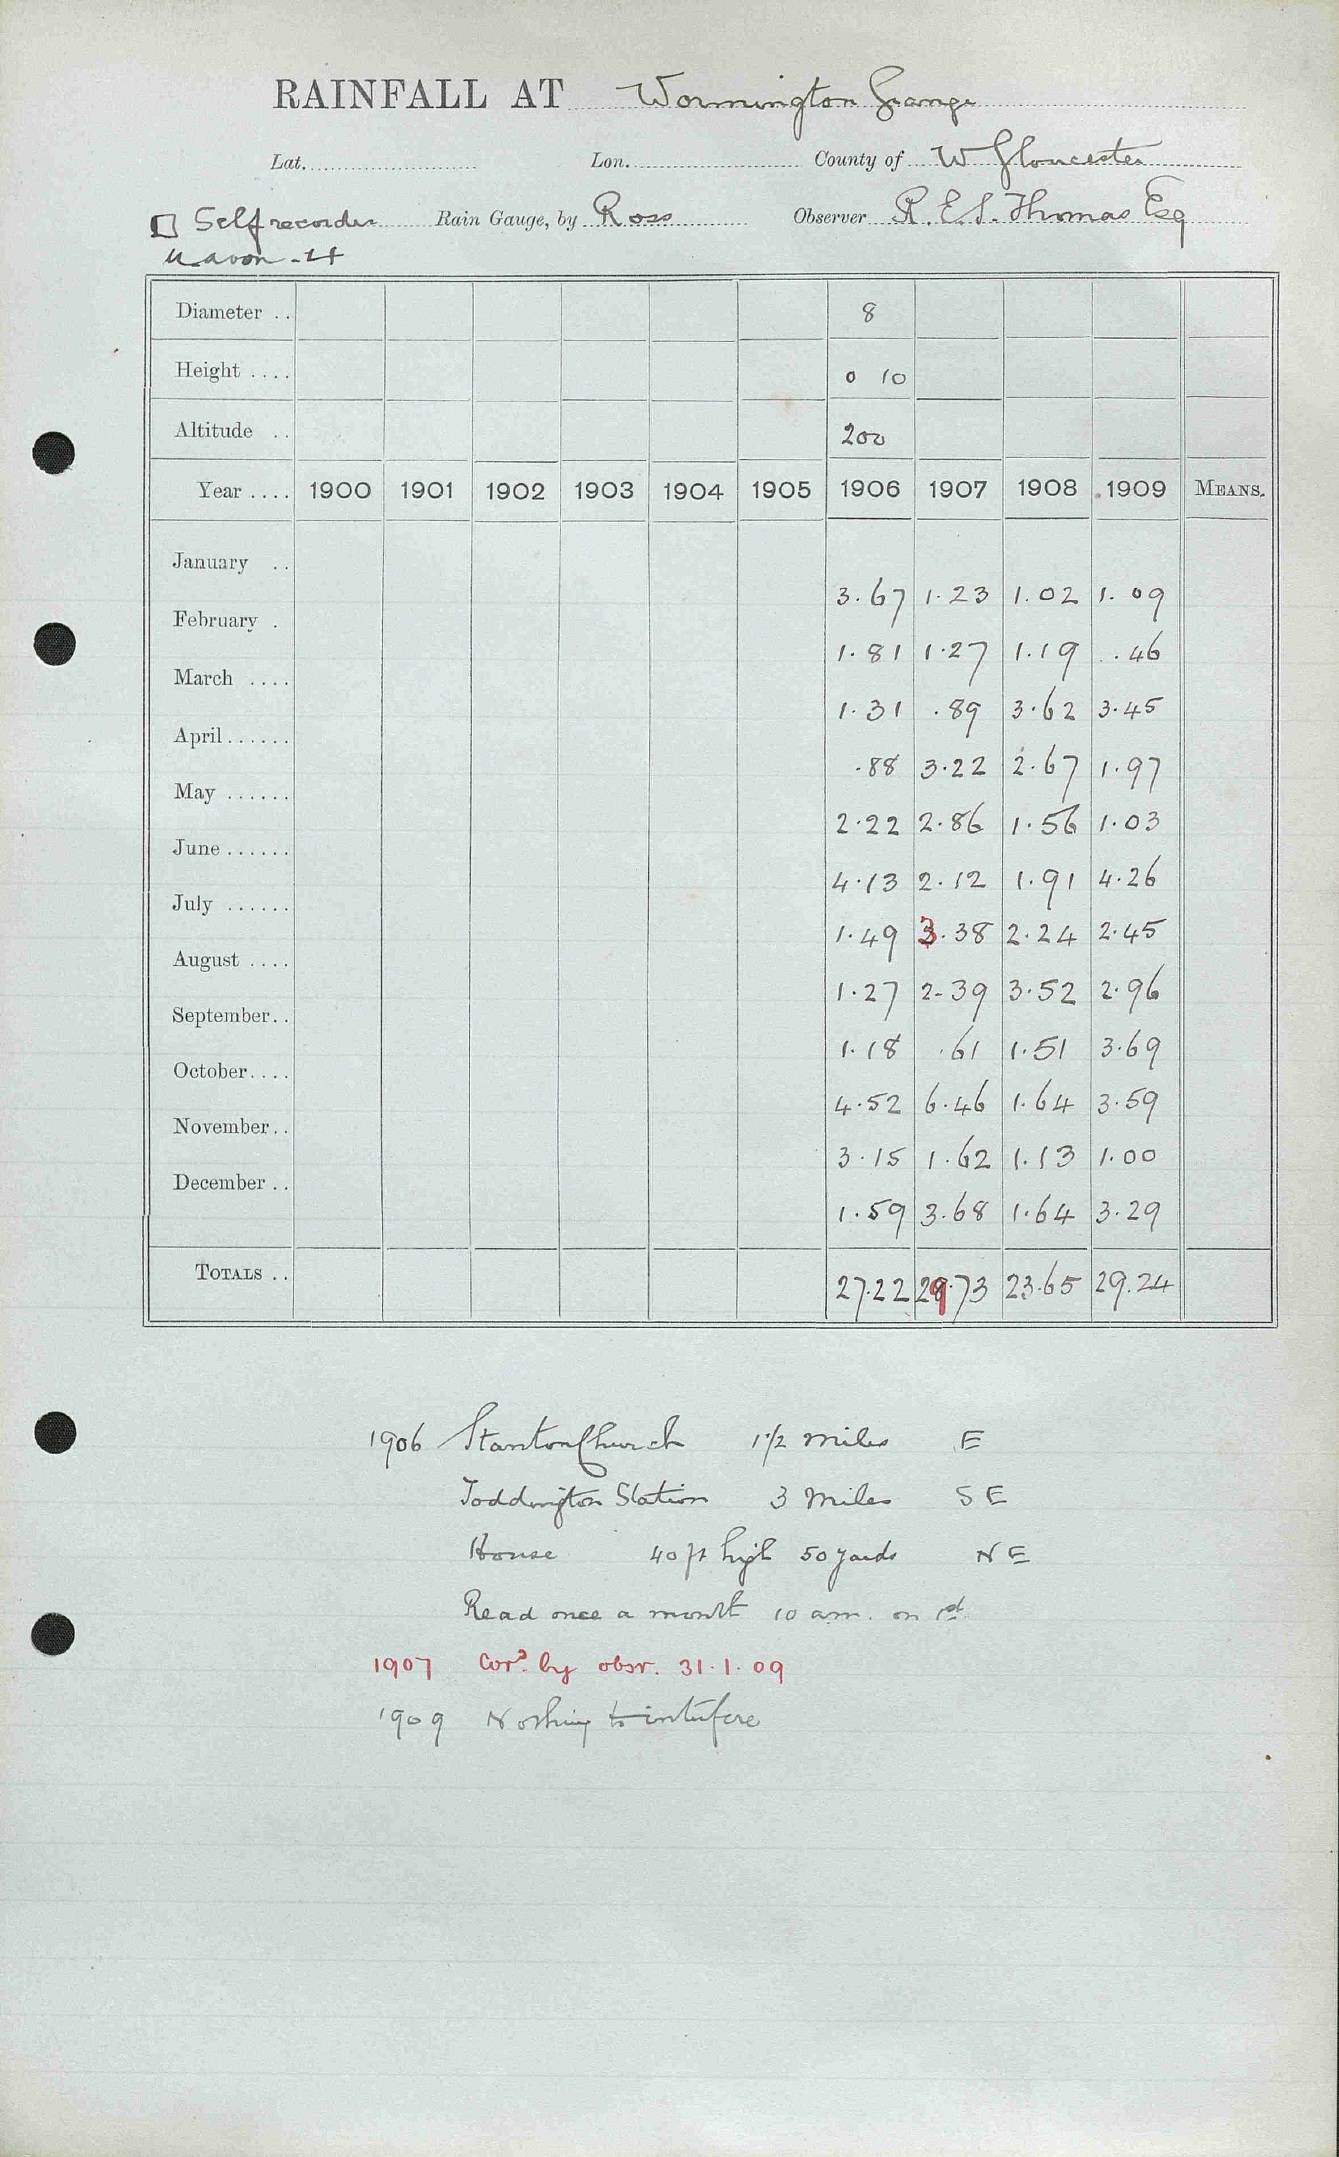 RAINFALL AT Wormington Grange
Lat. Lon. County of W Gloucester
Self recorder Rain Gauge, by Ross Observer R. E. S. Thomas Esq
U avon - H
Diameter .. 8
Height .... 0 10
Altitude .. 200
Year .... 1900 1901 1902 1903 1904 1905 1906 1907 1908 1909 MEANS.
January .. 3.67 1.23 1.02 1.09
February . 1.81 1.27 1.19 .46
March .... 1.31 .89 3.62 3.45
April ...... .88 3.22 2.67 1.97
May ...... 2.22 2.86 1.56 1.03
June ...... 4.13 2.12 1.91 4.26
July ...... 1.49 3.38 2.24 2.45
August .... 1.27 2.39 3.52 2.96
September.. 1.18 .61 1.51 3.69
October.... 4.52 6.46 1.64 3.59
November.. 3.15 1.62 1.13 1.00
December .. 1.59 3.68 1.64 3.29
TOTALS .. 27.22 29.73 23.65 29.24
1906 Stanton Church 1½ miles E
Toddington Station 3 miles SE
House 40 ft high 50 yards NE
Read once a month 10 am. on 1st
1907 Cord. by obsr. 31.1.09
1909 Nothing to interfere